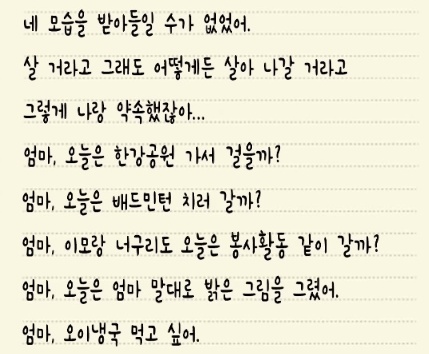 네 모습을 받아들일 수가 없었어.
살 거라고 그래도 어떻게든 살아 나갈 거라고
그렇게 나랑 약속했잖아...
엄마, 오늘은 한강공원 가서 걸을까?
엄마, 오늘은 배드민턴 치러 갈까?
엄마, 이모랑 너구리도 오늘은 봉사활동 같이 갈까?
엄마, 오늘은 엄마 말대로 밝은 그림을 그렸어.
엄마, 오이냉국 먹고 싶어.